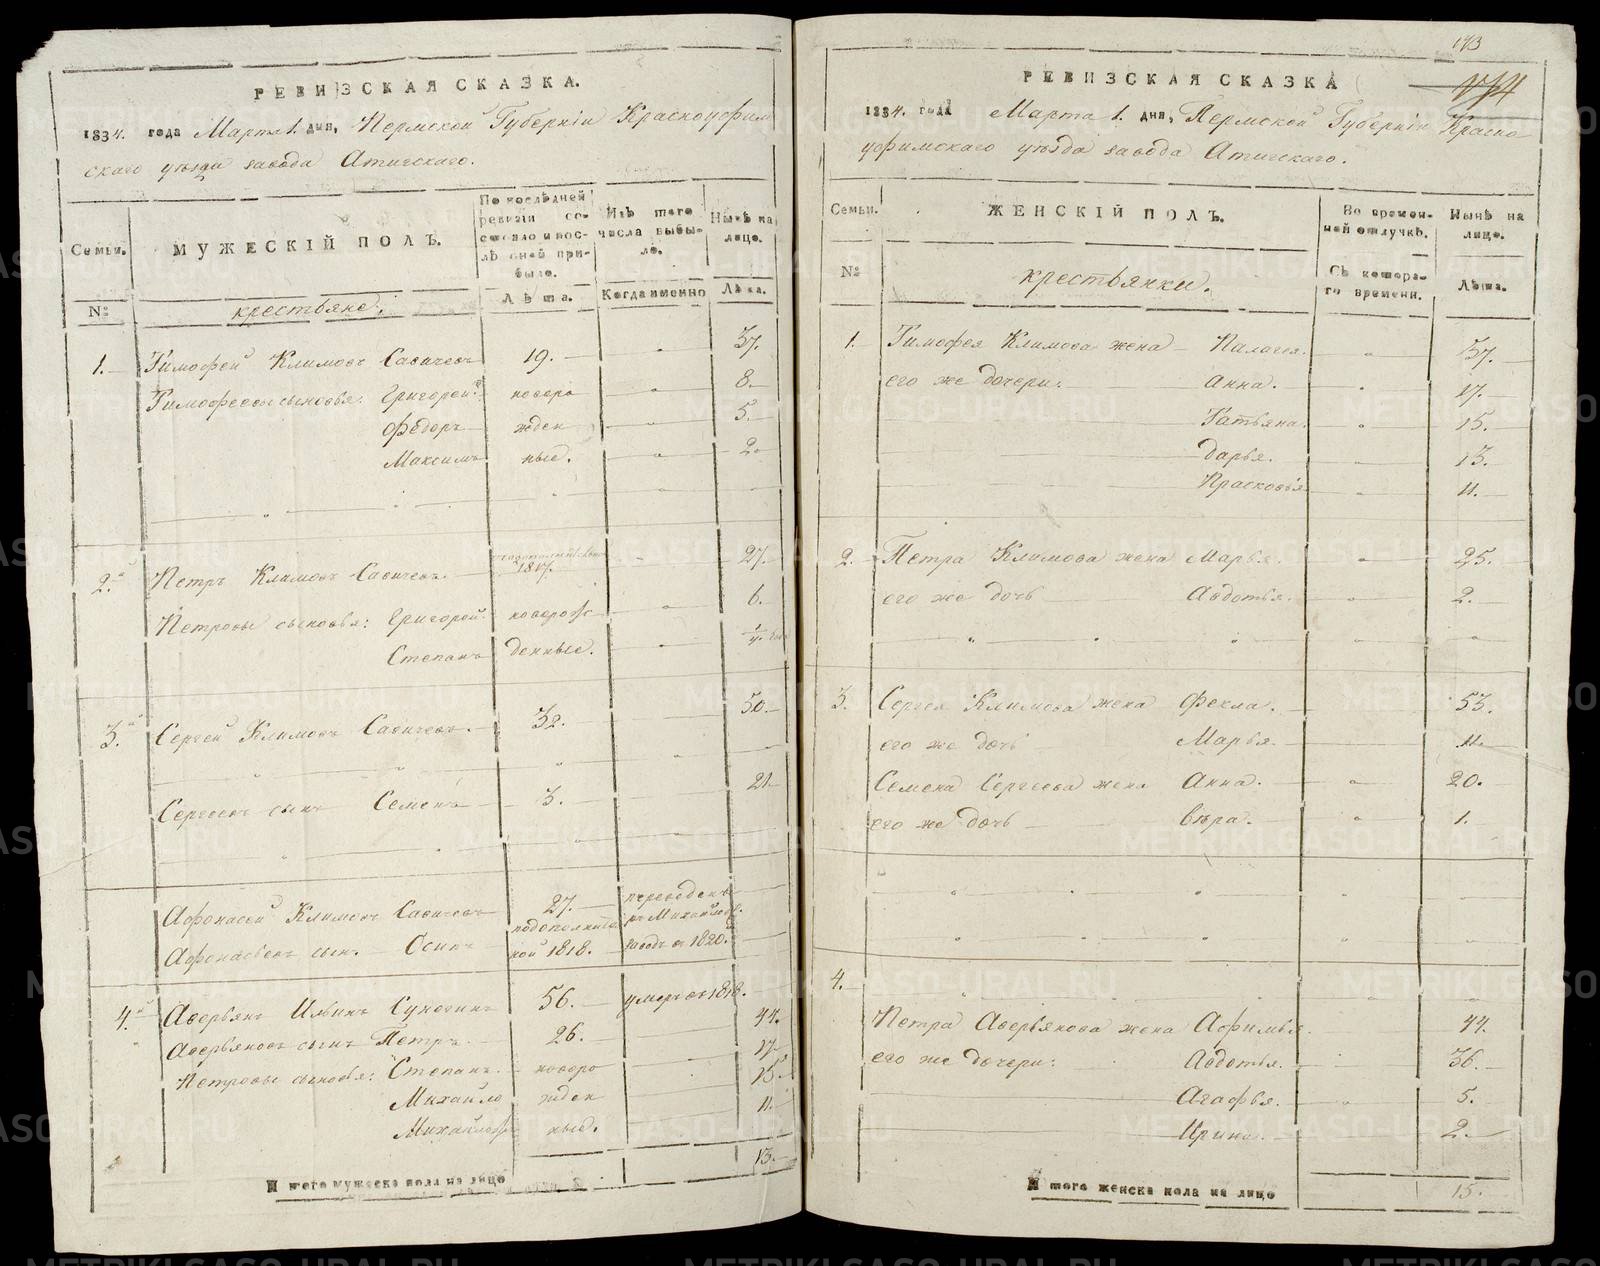 РЕВИЗСКАЯ СКАЗКА.
1834. года Марта 1. дня, Пермской Губерніи Красноуфим
скаго уѣзда завода Атигскаго.
Семьи.
МУЖЕСКІЙ ПОЛЪ.
По послѣдней ревизіи состояло и послѣ оной прибыло.
Изъ того числа выбыло.
Нынѣ на лицо.
№
крестьяне.
Лѣта.
Когда именно
Лѣта.
1. Тимофей Климовъ Савичевъ 19. 37.
Тимофеевы сыновья: Григорей новоро 8.
Федоръ жден 5.
Максимъ ные. 2.
2. Петръ Климовъ Савичевъ. 1817. 27.
Петровы сыновья: Григорей новорож 6.
Степанъ денные.
3. Сергей Климовъ Савичевъ. 32. 50.
Сергеевъ сынъ Семенъ 3. 21.
Афонасей Климовъ Савичевъ 27. переведенъ
подополнител въ Михайлов.
Афонасьевъ сын. Осипъ ной 1818. заводъ въ 1820.
4. Аверьянъ Ильинъ 56. умеръ въ 1818.
Аверьяновъ сынъ Петръ. 26. 44.
Петровы сыновья: Степанъ. новоро 17.
Михайло жден 15.
ные. 11.
Итого мужеска пола на лицо 13.
173
РЕВИЗСКАЯ СКАЗКА
1834. года Марта 1. дня, Пермской Губерніи Красно
уфимскаго уѣзда завода Атигскаго.
Семьи.
ЖЕНСКІЙ ПОЛЪ.
Во временной отлучкѣ.
Нынѣ на лицо.
№
крестьянки.
Съ котораго времени.
Лѣта.
1. Тимофея Климова жена Палагея. 37.
его же дочери: Анна. 17.
Татьяна. 15.
Дарья. 13.
Прасковья 11.
2. Петра Климова жена Марья. 25.
его же дочь Авдотья. 2.
3. Сергея Климова жена Фекла. 53.
его же дочь Марья. 11.
Семена Сергеева жена Анна. 20.
его же дочь Вѣра. 1.
4.
Петра Аверьянова жена Афимья. 44.
его же дочери: Авдотья. 36.
Агафья. 5.
Ирина. 2.
Итого женска пола на лицо 15.
METRIKI.GASO-URAL.RU